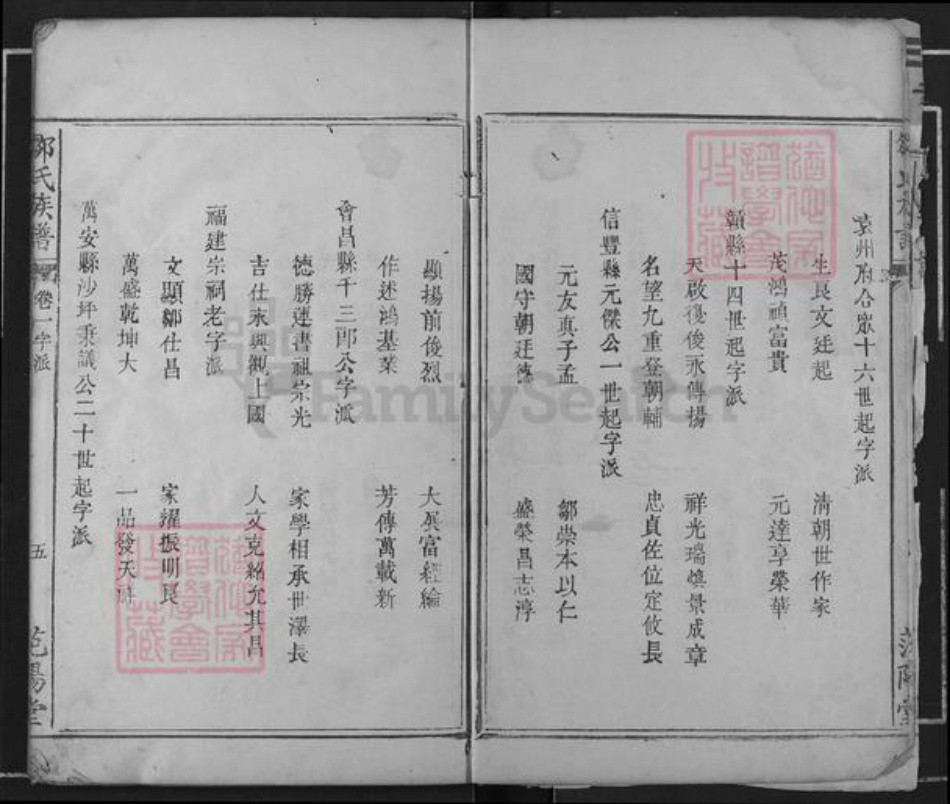 袁州府合眾十六世起字派
生良文廷起 清朝世作家
茂鴻禎富貴 元達享榮華
贛縣十四世起字派
天啟復俊永傳揚 祥光瑞慎景成章
名望九重登朝輔 忠貞佐位定攸長
信豐縣元傑公一世起字派
元友真子孟 鄒崇本以仁
國守朝廷德 盛榮昌志淳
顯揚前俊烈 大展富經綸
作述鴻基業 芳傳萬載新
會昌縣千三郎公字派
德勝運書祖宗光 家學相承世澤長
吉仕永興觀上國 人文克紹允其昌
福建宗祠老字派
文顯鄒仕昌 家耀振明良
萬盛乾坤大 一品發天祥
萬安縣沙坪秉議公二十世起字派
鄒氏族譜 卷一字派 五 范陽堂
范陽堂
FamilySearch